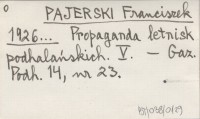 o
PAJERSKI Franciszek
1926... Propaganda letnisk
podhalańskich. V. — Gaz.
Podh. 14, nr 23.